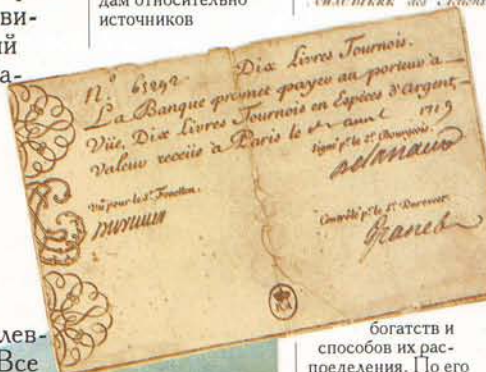 ви-
ий
а-
дам относительно
источников
N.º 63292 Dix Livres Tournois.
La Banque promet payer au porteur à
Vüe, Dix Livres Tournois en Especes d'Argent,
valeur receüe à Paris le 1719
Signé p.r le S.r Bourgeois.
Delanauze
Vu pour le S.r Fenellon.
Controllé p.r le S.r Durevest.
Granet
лев-
Все
богатств и
способов их рас-
пределения. По его